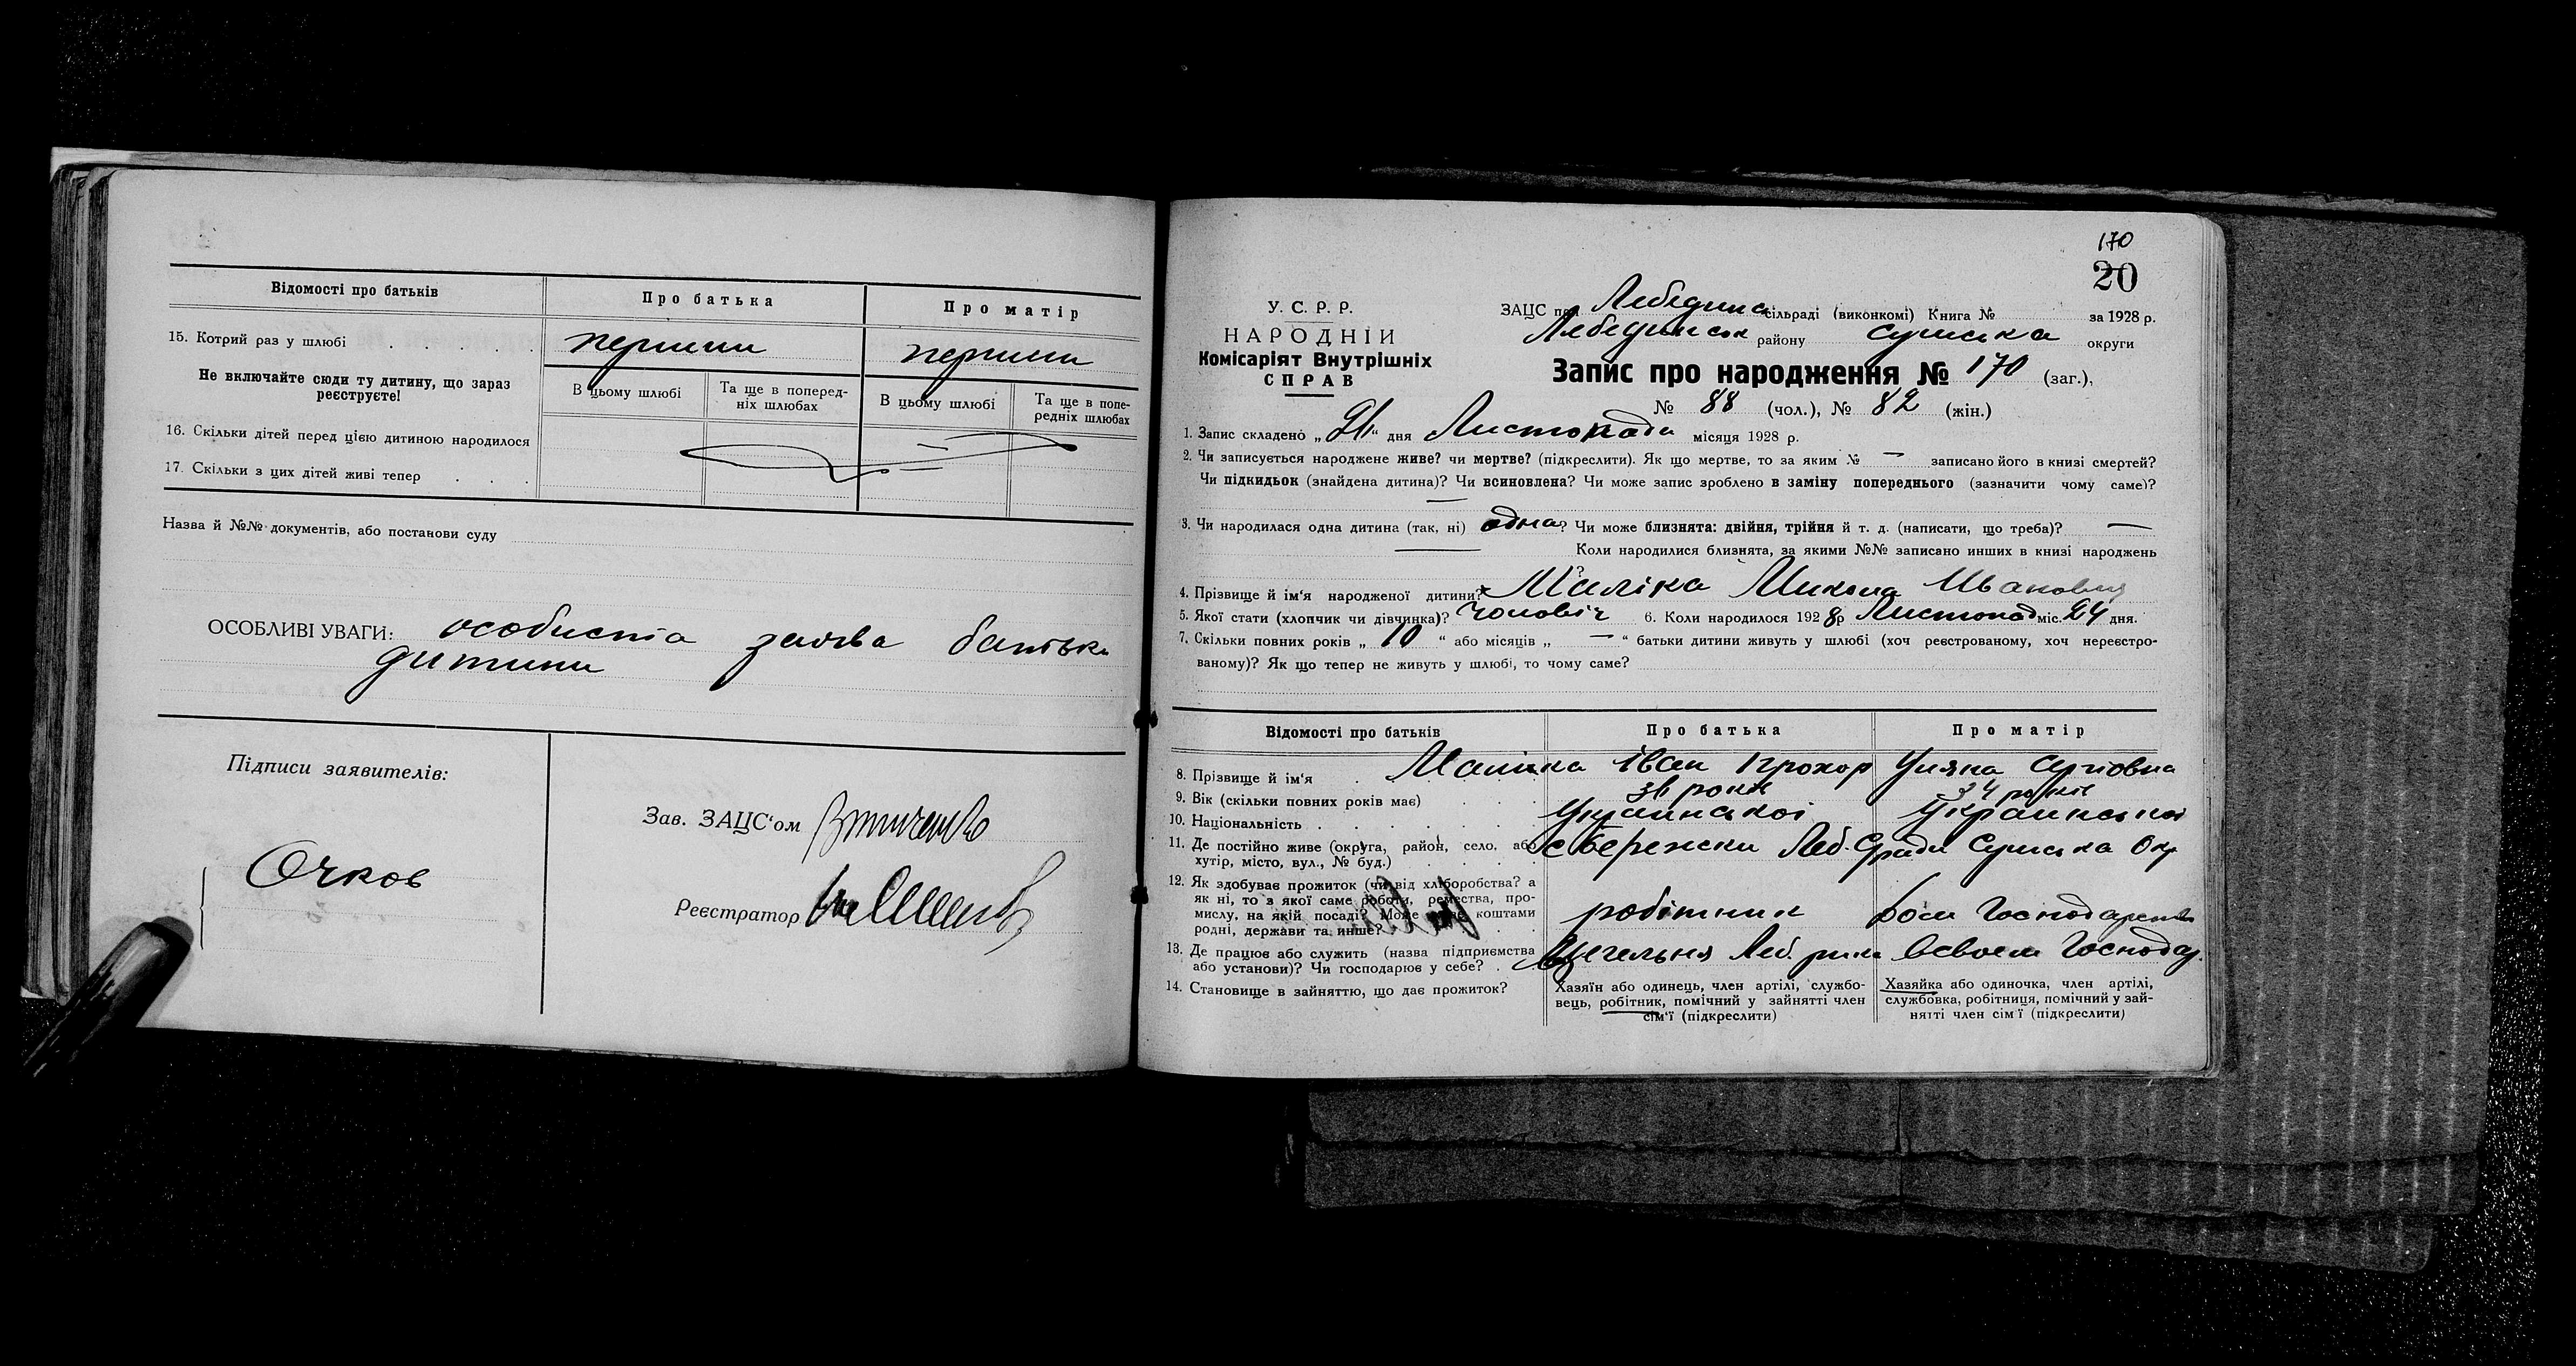 Відомості про батьків
Про батька
Про матір
15. Котрий раз у шлюбі
перший
перший
Не включайте сюди ту дитину, що зараз
реєструєте!
В цьому шлюбі
Та ще в поперед-
ніх шлюбах
В цьому шлюбі
Та ще в попе-
редніх шлюбах
16. Скільки дітей перед цією дитиною народилося
17. Скільки з цих дітей живі тепер
Назва й №№ документів, або постанови суду
ОСОБЛИВІ УВАГИ: особиста заява батька
дитини
Підписи заявителів:
Очков
Зав. ЗАЦС'ом
Реєстратор
170
20
У. С. Р. Р.
НАРОДНІЙ
Комісаріят Внутрішніх
СПРАВ
ЗАЦС при Лебединс сільраді (виконкомі) Книга № за 1928 р.
Лебединськ району Сумська округи
Запис про народження № 170 (заг.),
№ 88 (чол.), № 82 (жін.)
1. Запис складено „ “ дня Листопада місяця 1928 р.
2. Чи записується народжене живе? чи мертве? (підкреслити). Як що мертве, то за яким № — записано його в книзі смертей?
Чи підкидьок (знайдена дитина)? Чи всиновлена? Чи може запис зроблено в заміну попереднього (зазначити чому саме)?
—
3. Чи народилася одна дитина (так, ні) одна? Чи може близнята: двійня, трійня й т. д. (написати, що треба)? —
— Коли народилися близнята, за якими №№ записано инших в книзі народжень
?
4. Прізвище й ім'я народженої дитини? Маліка Микола Иванович
5. Якої стати (хлопчик чи дівчинка)? чоловіч 6. Коли народилося 1928 р Листопад міс. 24 дня.
7. Скільки повних років „ 10 “ або місяців „ — “ батьки дитини живуть у шлюбі (хоч реєстрованому, хоч нереєстро-
ваному)? Як що тепер не живуть у шлюбі, то чому саме?
Відомості про батьків
Про батька
Про матір
8. Прізвище й ім'я Маліка Іван Прохор Уляна Сергіовна
9. Вік (скільки повних років має) 36 роки 34 років
10. Національність Украинської Украинської
11. Де постійно живе (округа, район, село, або
хутір, місто, вул., № буд.)
с Бережки Леб. Сради Сумська Окр
12. Як здобуває прожиток (чи від хліборобства? а
як ні, то з якої саме роботи, ремества, про-
мислу, на якій посаді? Може коштами
родні, держави та инше?
робітник
дом Господарств
13. Де працює або служить (назва підприємства
або установи)? Чи господарює у себе?
Цегельня Леб.
Всвоем Господар.
14. Становище в зайняттю, що дає прожиток?
Хазяїн або одинець, член артілі, службо-
вець, робітник, помічний у зайнятті член
сім'ї (підкреслити)
Хазяйка або одиночка, член артілі,
службовка, робітниця, помічний у зай-
нятті член сім'ї (підкреслити)